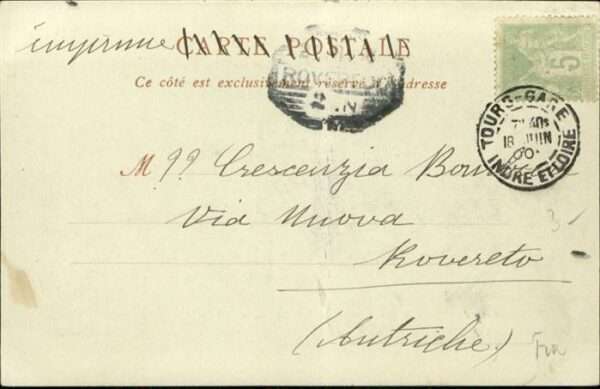 imprimé CARTE POSTALE
Ce côté est exclusivement réservé à l'adresse
ROVERETO
TOURS-GARE
18 JUIN
00
INDRE ET LOIRE
5
M Crescenzia
Via Nuova
Rovereto
(Autriche)